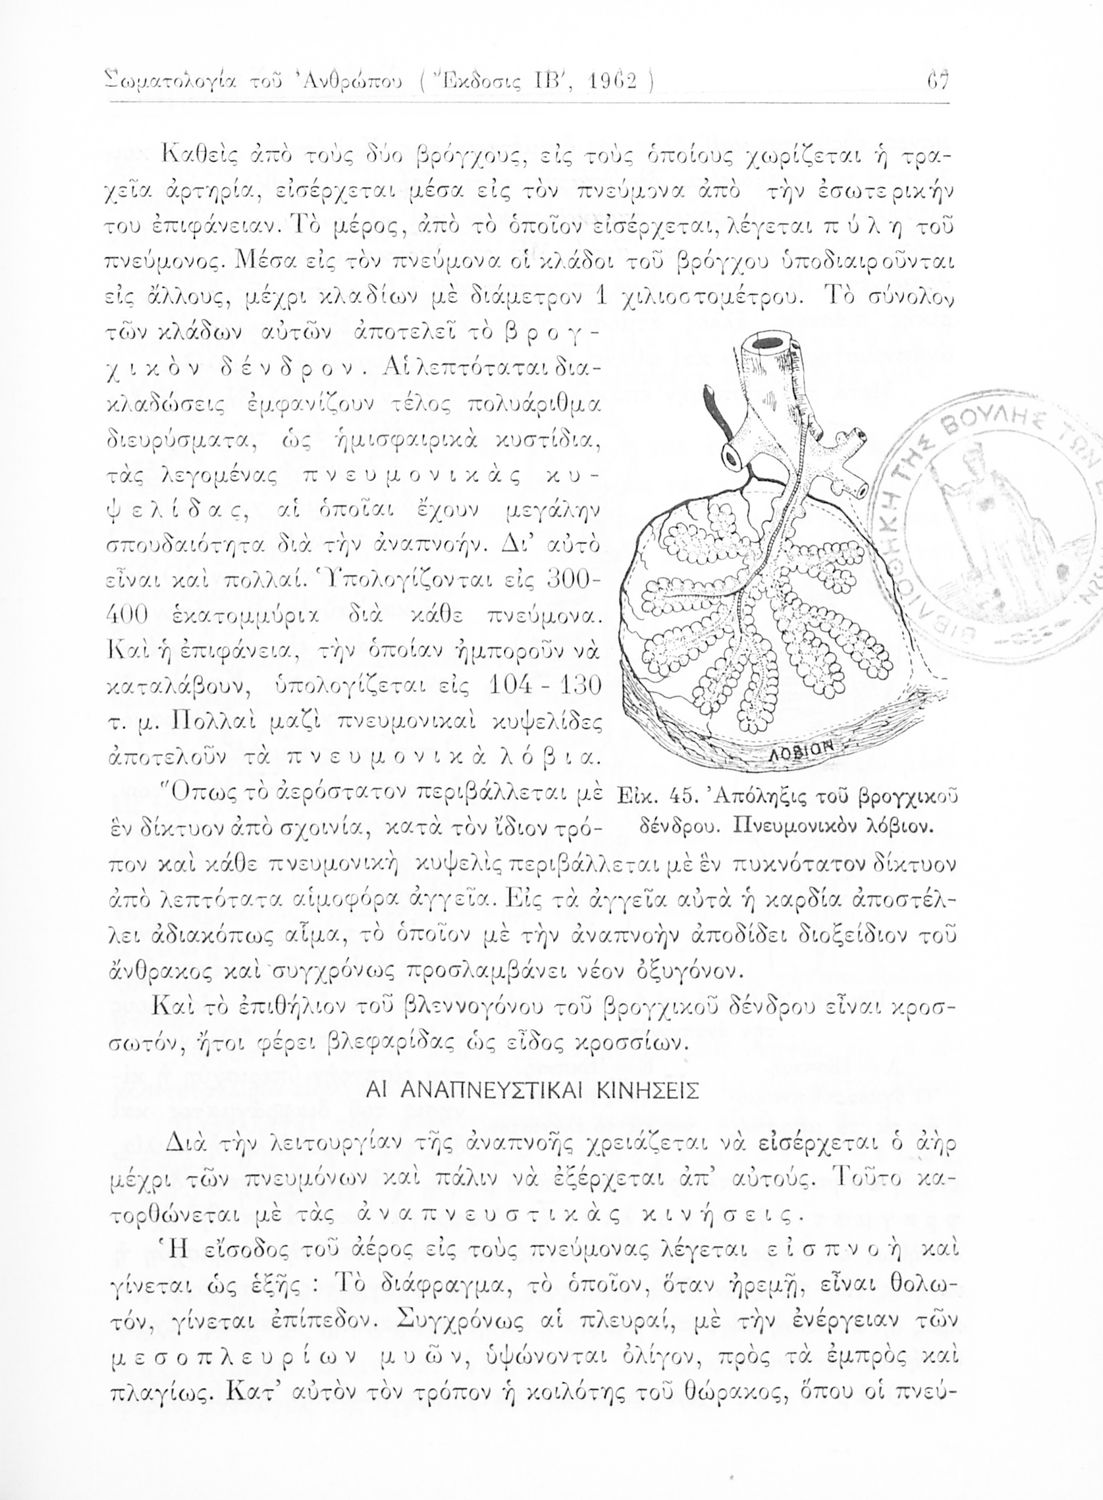 Σωματολογία τοῦ Ἀνθρώπου ( Ἔκδοσις ΙΒ′, 1962 ) 67
Καθεὶς ἀπὸ τοὺς δύο βρόγχους, εἰς τοὺς ὁποίους χωρίζεται ἡ τρα-
χεῖα ἀρτηρία, εἰσέρχεται μέσα εἰς τὸν πνεύμονα ἀπὸ τὴν ἐσωτερικήν
του ἐπιφάνειαν. Τὸ μέρος, ἀπὸ τὸ ὁποῖον εἰσέρχεται, λέγεται π ύ λ η τοῦ
πνεύμονος. Μέσα εἰς τὸν πνεύμονα οἱ κλάδοι τοῦ βρόγχου ὑποδιαιροῦνται
εἰς ἄλλους, μέχρι κλαδίων μὲ διάμετρον 1 χιλιοστομέτρου. Τὸ σύνολον
τῶν κλάδων αὐτῶν ἀποτελεῖ τὸ β ρ ο γ -
χ ι κ ὸ ν δ έ ν δ ρ ο ν . Αἱ λεπτόταται δια-
κλαδώσεις ἐμφανίζουν τέλος πολυάριθμα
διευρύσματα, ὡς ἡμισφαιρικὰ κυστίδια,
τὰς λεγομένας π ν ε υ μ ο ν ι κ ὰ ς κ υ -
ψ ε λ ί δ α ς, αἱ ὁποῖαι ἔχουν μεγάλην
σπουδαιότητα διὰ τὴν ἀναπνοήν. Δι’ αὐτὸ
εἶναι καὶ πολλαί. Ὑπολογίζονται εἰς 300-
400 ἑκατομμύρια διὰ κάθε πνεύμονα.
Καὶ ἡ ἐπιφάνεια, τὴν ὁποίαν ἠμποροῦν νὰ
καταλάβουν, ὑπολογίζεται εἰς 104 - 130
τ. μ. Πολλαὶ μαζὶ πνευμονικαὶ κυψελίδες
ἀποτελοῦν τὰ π ν ε υ μ ο ν ι κ ὰ λ ό β ι α.
ΛΟΒΙΟΝ
Εἰκ. 45. Ἀπόληξις τοῦ βρογχικοῦ
δένδρου. Πνευμονικὸν λόβιον.
ΒΙΒΛΙΟΘΗΚΗ ΤΗΣ ΒΟΥΛΗΣ ΤΩΝ
Ὅπως τὸ ἀερόστατον περιβάλλεται μὲ
ἓν δίκτυον ἀπὸ σχοινία, κατὰ τὸν ἴδιον τρό-
πον καὶ κάθε πνευμονικὴ κυψελὶς περιβάλλεται μὲ ἓν πυκνότατον δίκτυον
ἀπὸ λεπτότατα αἱμοφόρα ἀγγεῖα. Εἰς τὰ ἀγγεῖα αὐτὰ ἡ καρδία ἀποστέλ-
λει ἀδιακόπως αἷμα, τὸ ὁποῖον μὲ τὴν ἀναπνοὴν ἀποδίδει διοξείδιον τοῦ
ἄνθρακος καὶ συγχρόνως προσλαμβάνει νέον ὀξυγόνον.
Καὶ τὸ ἐπιθήλιον τοῦ βλεννογόνου τοῦ βρογχικοῦ δένδρου εἶναι κροσ-
σωτόν, ἤτοι φέρει βλεφαρίδας ὡς εἶδος κροσσίων.
ΑΙ ΑΝΑΠΝΕΥΣΤΙΚΑΙ ΚΙΝΗΣΕΙΣ
Διὰ τὴν λειτουργίαν τῆς ἀναπνοῆς χρειάζεται νὰ εἰσέρχεται ὁ ἀὴρ
μέχρι τῶν πνευμόνων καὶ πάλιν νὰ ἐξέρχεται ἀπ’ αὐτούς. Τοῦτο κα-
τορθώνεται μὲ τὰς ἀ ν α π ν ε υ σ τ ι κ ὰ ς κ ι ν ή σ ε ι ς .
Ἡ εἴσοδος τοῦ ἀέρος εἰς τοὺς πνεύμονας λέγεται ε ἰ σ π ν ο ὴ καὶ
γίνεται ὡς ἑξῆς : Τὸ διάφραγμα, τὸ ὁποῖον, ὅταν ἠρεμῇ, εἶναι θολω-
τόν, γίνεται ἐπίπεδον. Συγχρόνως αἱ πλευραί, μὲ τὴν ἐνέργειαν τῶν
μ ε σ ο π λ ε υ ρ ί ω ν μ υ ῶ ν, ὑψώνονται ὀλίγον, πρὸς τὰ ἐμπρὸς καὶ
πλαγίως. Κατ’ αὐτὸν τὸν τρόπον ἡ κοιλότης τοῦ θώρακος, ὅπου οἱ πνεύ-